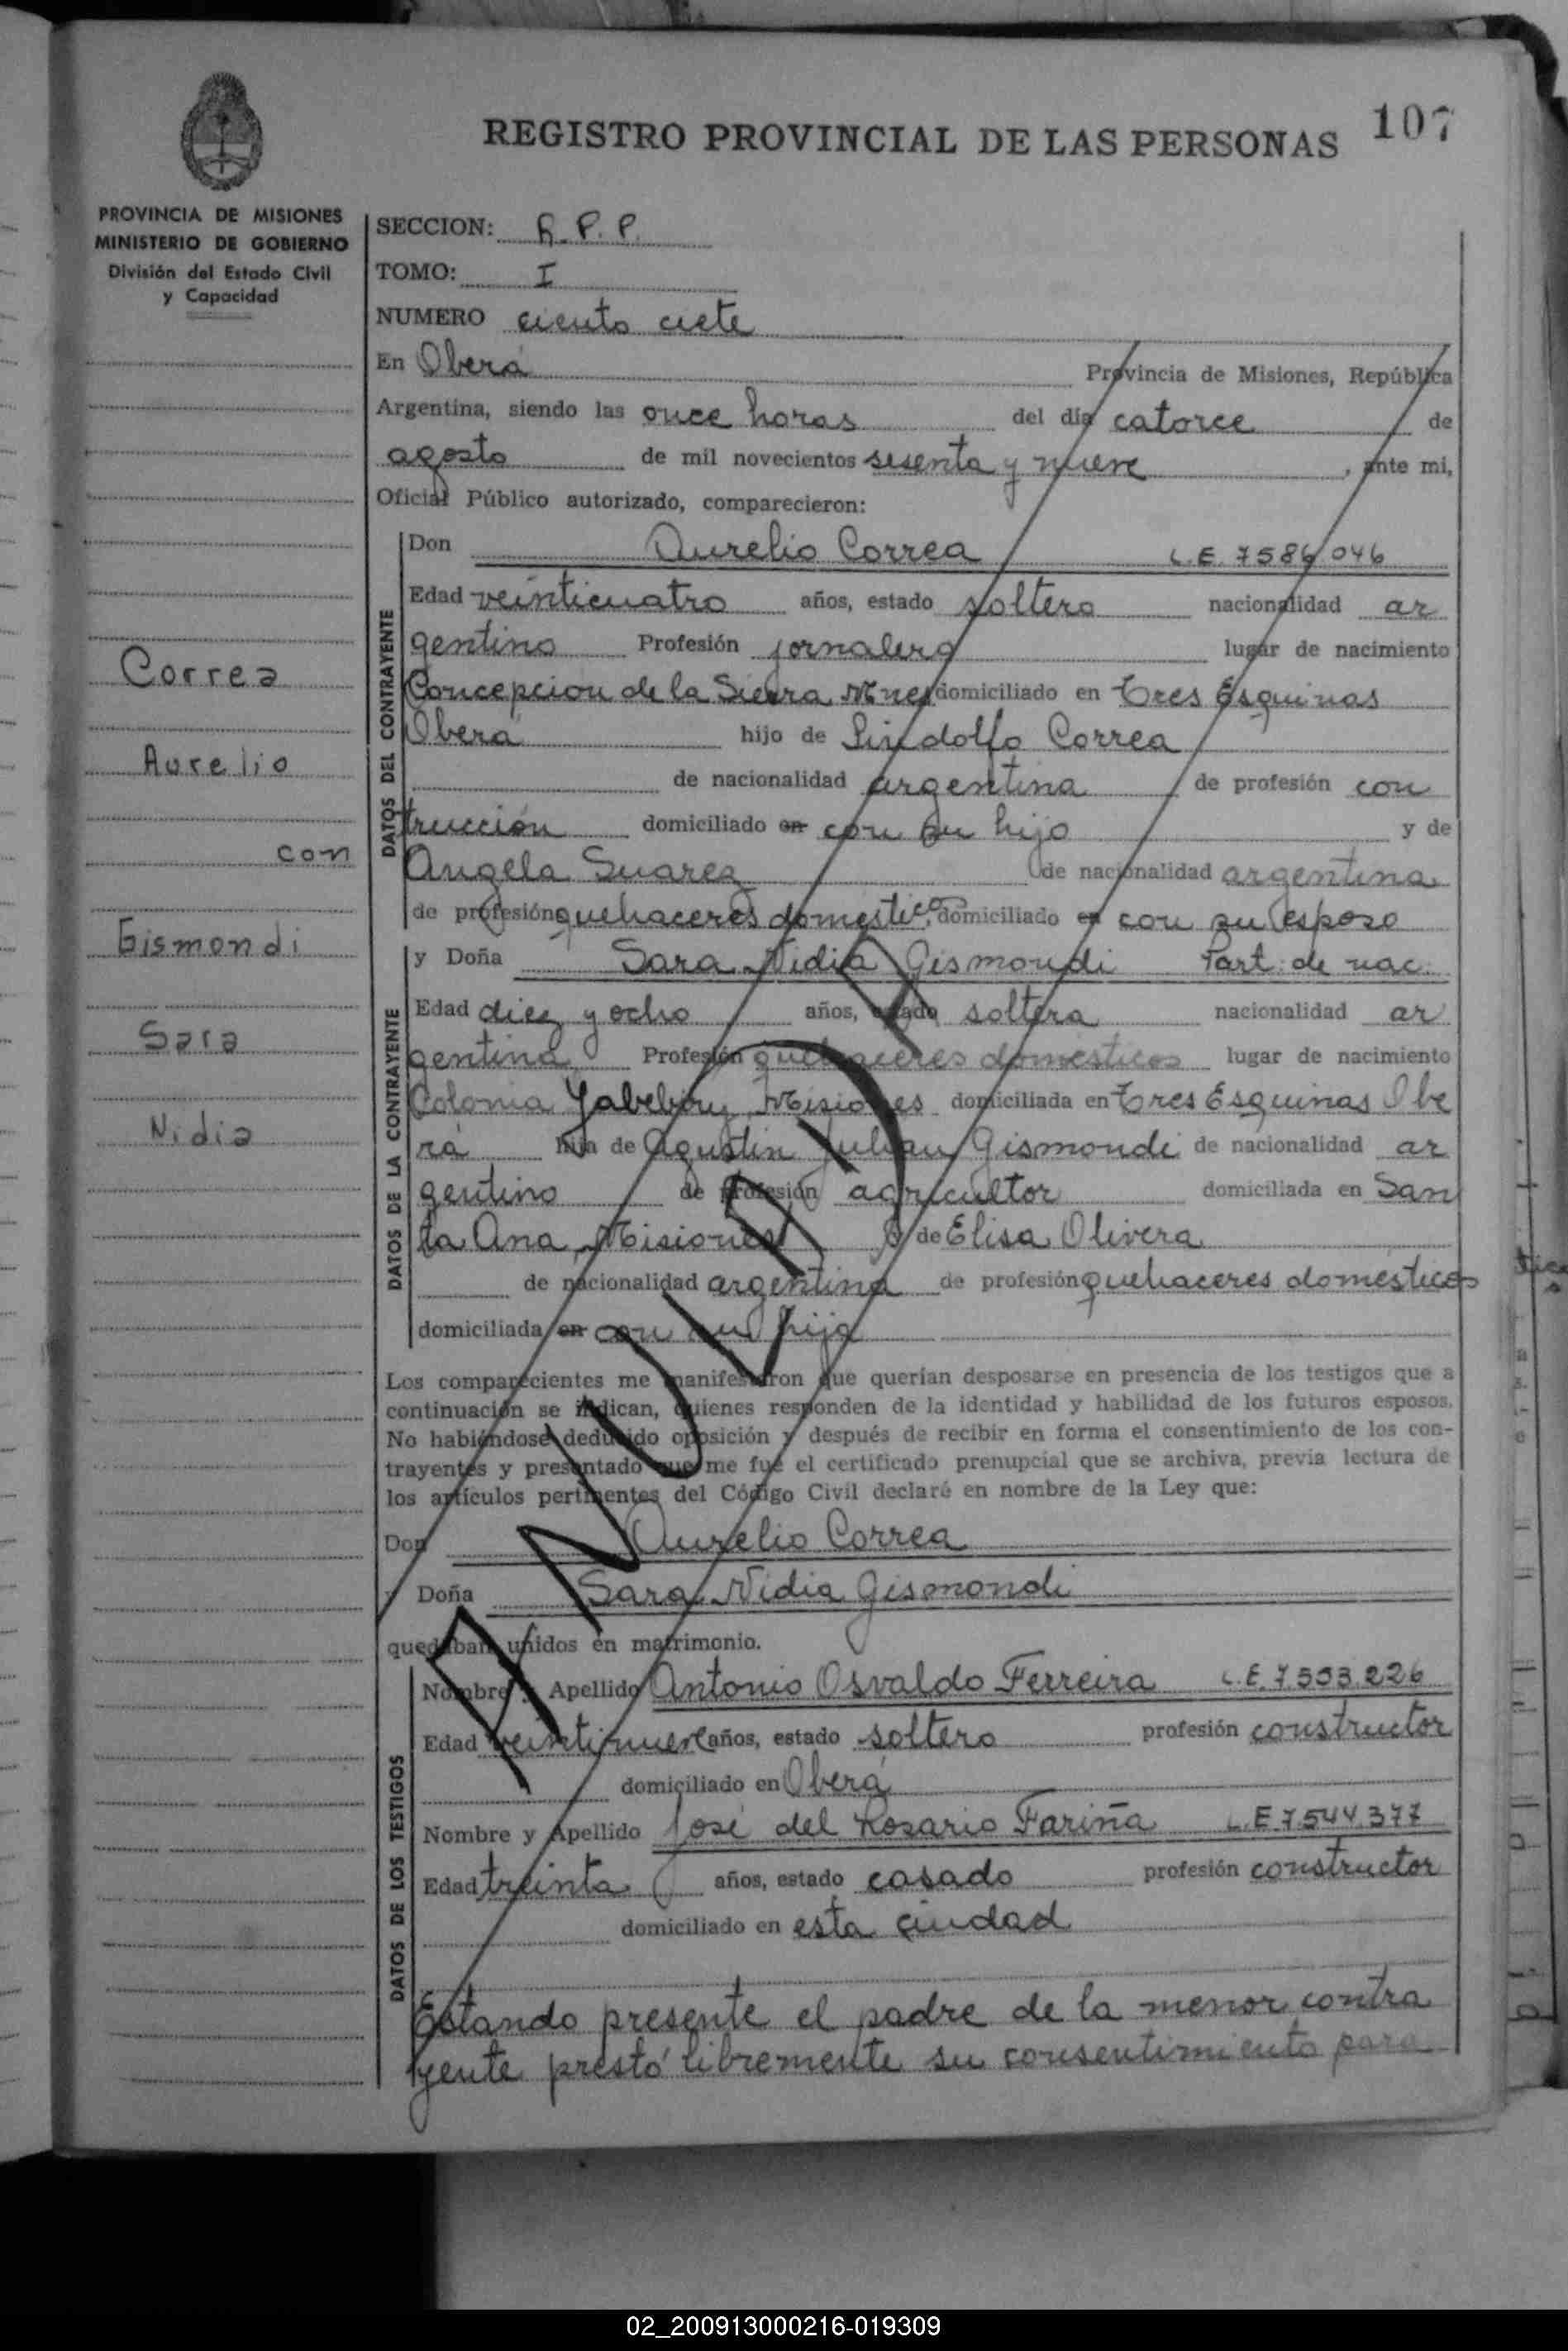 107
REGISTRO PROVINCIAL DE LAS PERSONAS
PROVINCIA DE MISIONES
MINISTERIO DE GOBIERNO
División del Estado Civil
y Capacidad
Correa
Aurelio
con
Gismondi
Sara
Nidia
SECCION: R.P.P.
TOMO: I
NUMERO ciento ciete
En Oberá Provincia de Misiones, República
Argentina, siendo las once horas del día catorce de
agosto de mil novecientos sesenta y nueve, ante mi,
Oficial Público autorizado, comparecieron:
DATOS DEL CONTRAYENTE
Don Aurelio Correa L.E. 7586046
Edad veinticuatro años, estado soltero nacionalidad ar
gentino Profesión jornalero lugar de nacimiento
Concepcion de la Sierra Mnes domiciliado en Tres Esquinas
Oberá hijo de Lindolfo Correa
de nacionalidad argentina de profesión con
trucción domiciliado en con su hijo y de
Angela Suarez de nacionalidad argentina
de profesión quehaceres domestico, domiciliado en con su esposo
DATOS DE LA CONTRAYENTE
y Doña Sara Nidia Gismondi Part. de nac.
Edad diez y ocho años, estado soltera nacionalidad ar
gentina Profesión quehaceres domésticos lugar de nacimiento
Colonia Yabebiry Misiones domiciliada en Tres Esquinas Obe
rá hija de Agustin Julian Gismondi de nacionalidad ar
gentino de profesión agricultor domiciliada en San
ta Ana Misiones y de Elisa Olivera
de nacionalidad argentina de profesión quehaceres domésticos
domiciliada en con su hija
Los comparecientes me manifestaron que querían desposarse en presencia de los testigos que a
continuación se indican, quienes responden de la identidad y habilidad de los futuros esposos.
No habiéndose deducido oposición y después de recibir en forma el consentimiento de los con-
trayentes y presentado que me fué el certificado prenupcial que se archiva, previa lectura de
los artículos pertinentes del Código Civil declaré en nombre de la Ley que:
Don Aurelio Correa
y Doña Sara Nidia Gismondi
quedaban unidos en matrimonio.
ANULADA
DATOS DE LOS TESTIGOS
Nombre y Apellido Antonio Osvaldo Ferreira L.E. 7.503.226
Edad veintinueve años, estado soltero profesión constructor
domiciliado en Oberá
Nombre y Apellido José del Rosario Fariña L.E 7.544.377
Edad treinta años, estado casado profesión constructor
domiciliado en esta ciudad
Estando presente el padre de la menor contra
yente prestó libremente su consentimiento para
02_200913000216-019309